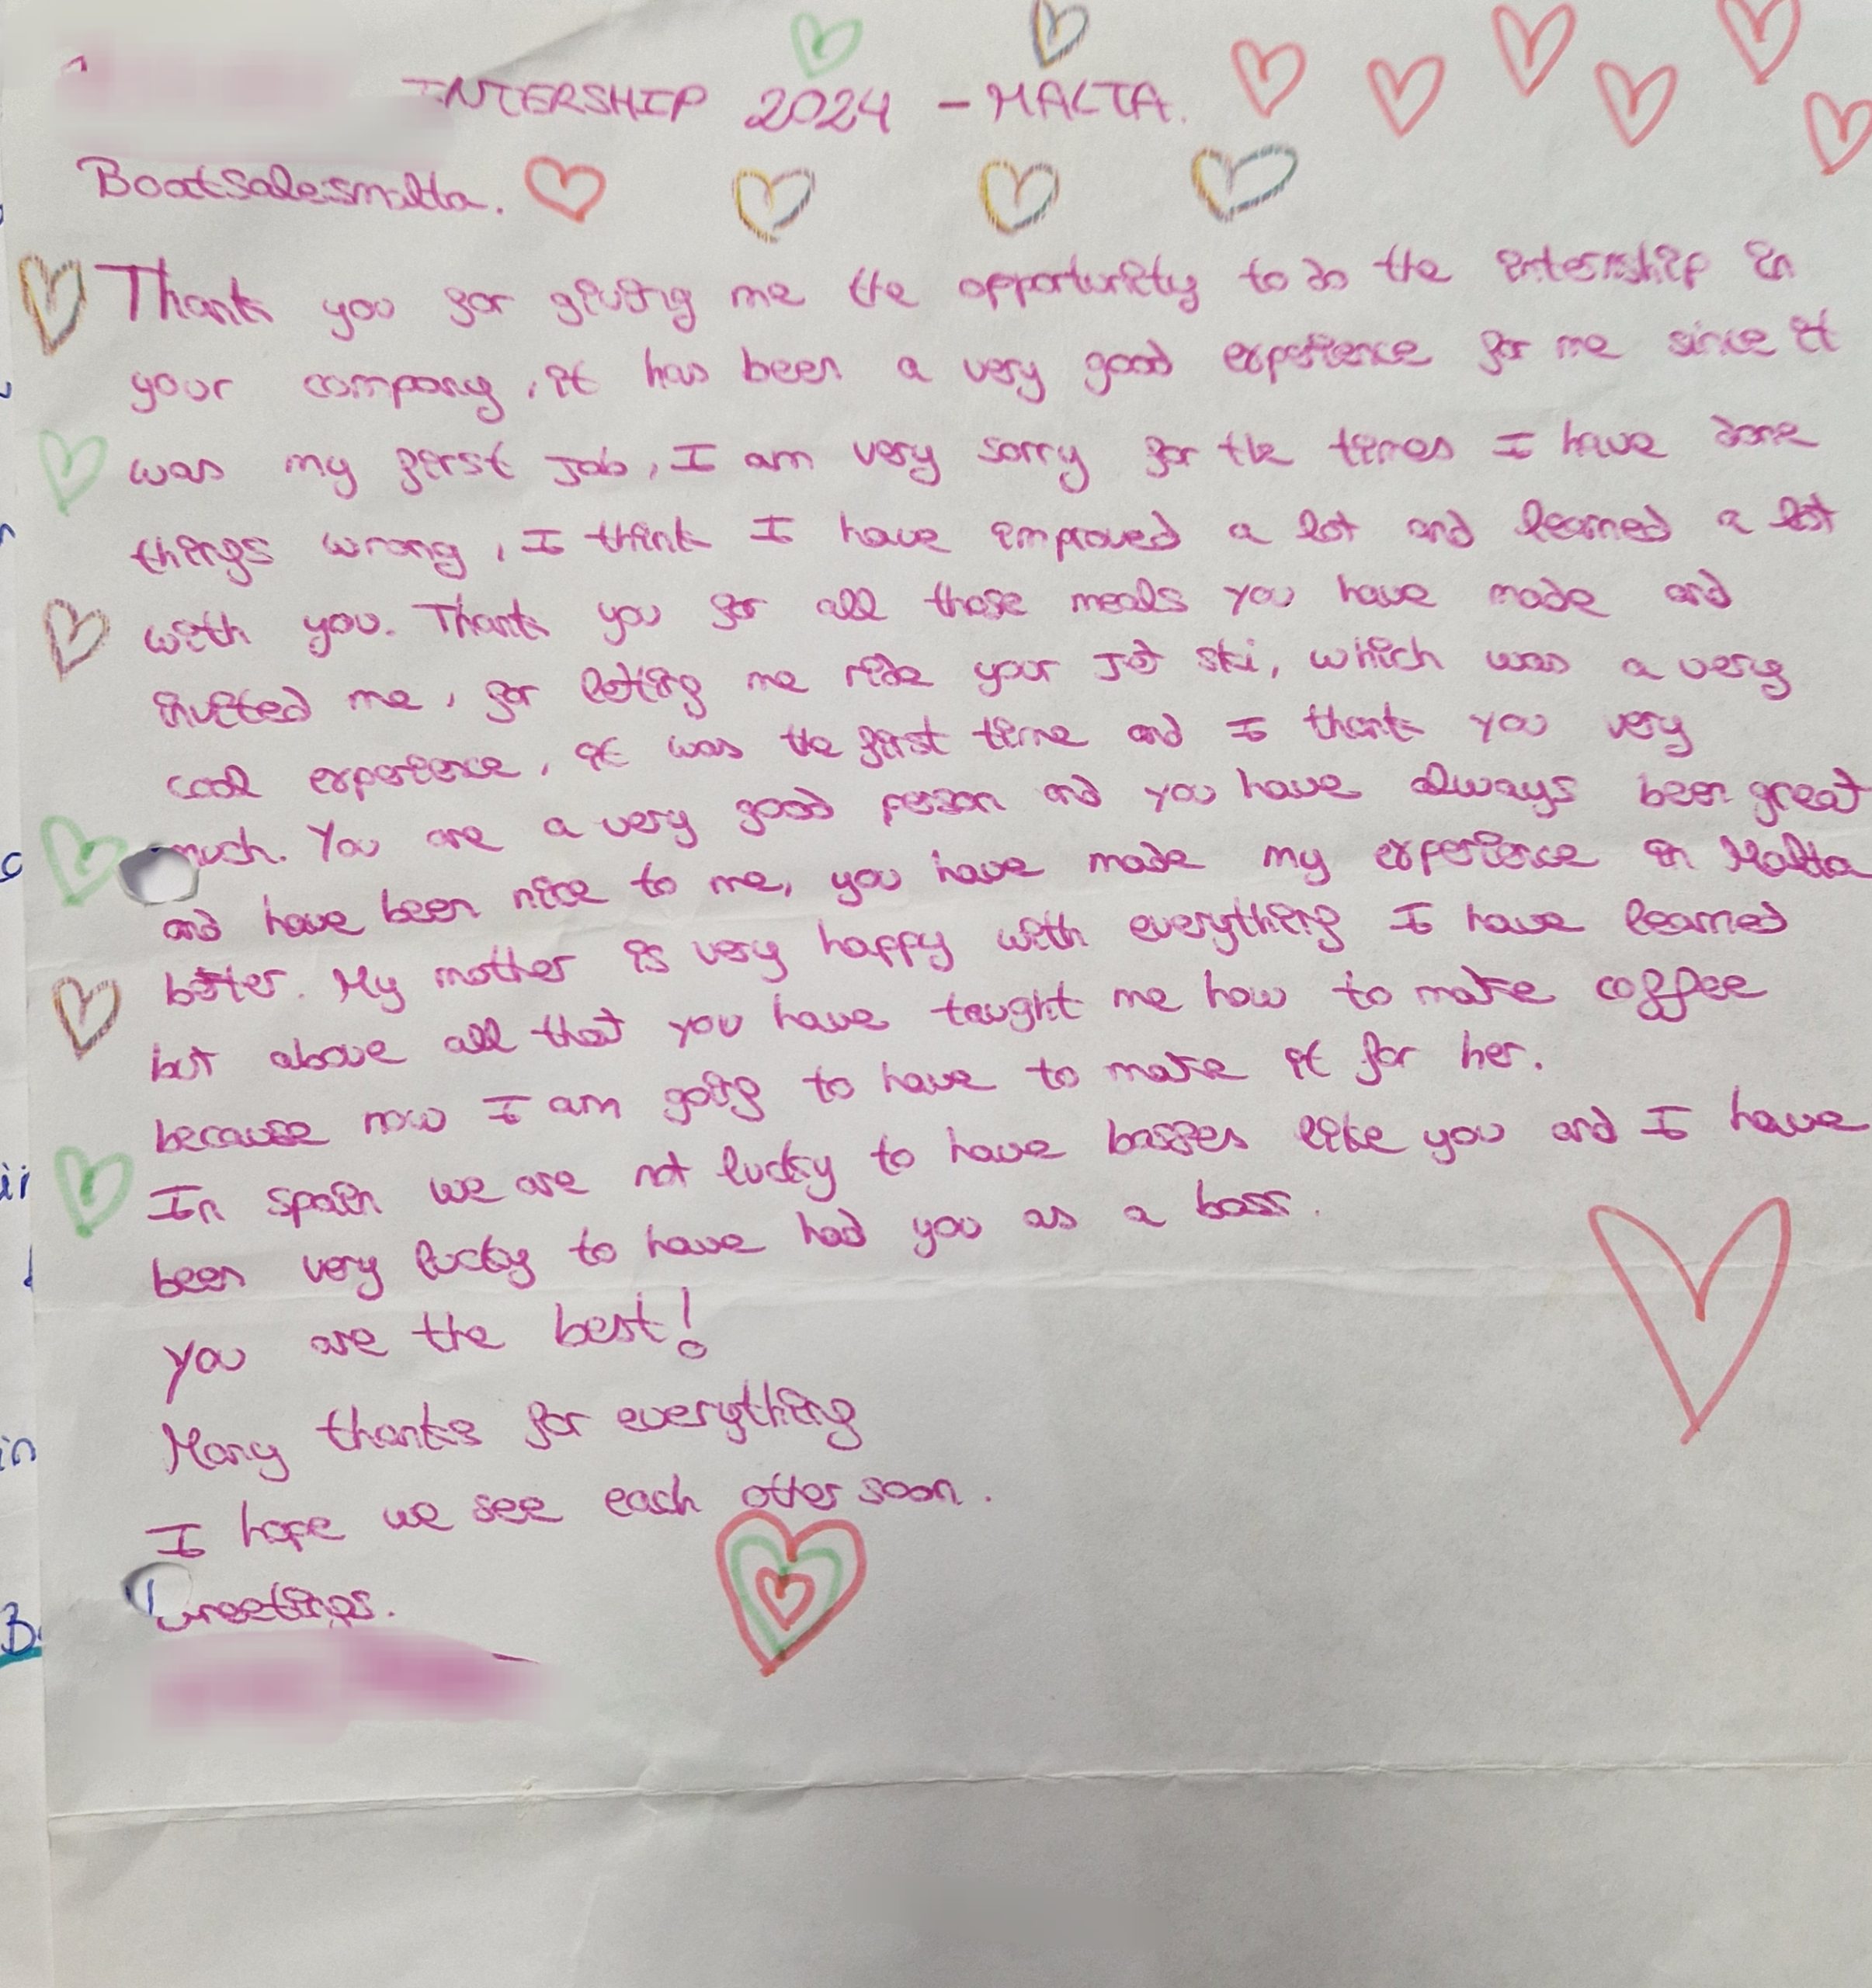 INTERSHIP 2024 - MALTA.
Boatsalesmalta.
Thank you for giving me the opportunity to do the internship in
your company, it has been a very good experience for me since it
was my first Job, I am very sorry for the times I have done
things wrong, I think I have improved a lot and learned a lot
with you. Thank you for all those meals you have made and
invited me, for leting me ride your Jet ski, which was a very
cool experience, it was the first time and I thank you very
much. You are a very good person and you have always been great
and have been nice to me, you have made my experience in Malta
better. My mother is very happy with everything I have learned
but above all that you have taught me how to make coffee
because now I am going to have to make it for her.
In spain we are not lucky to have bosses like you and I have
been very lucky to have had you as a boss.
you are the best!
Many thanks for everything
I hope we see each other soon.
Greetings.
in
B